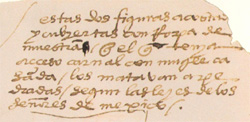 estas dos figuras acostadas
y cubiertas con Ropa de
muestran q̃ el q̃ tenia
acceso carnal con muger ca
sada / los matavan a pe
dradas / segun las leyes de los
señores de mexico.